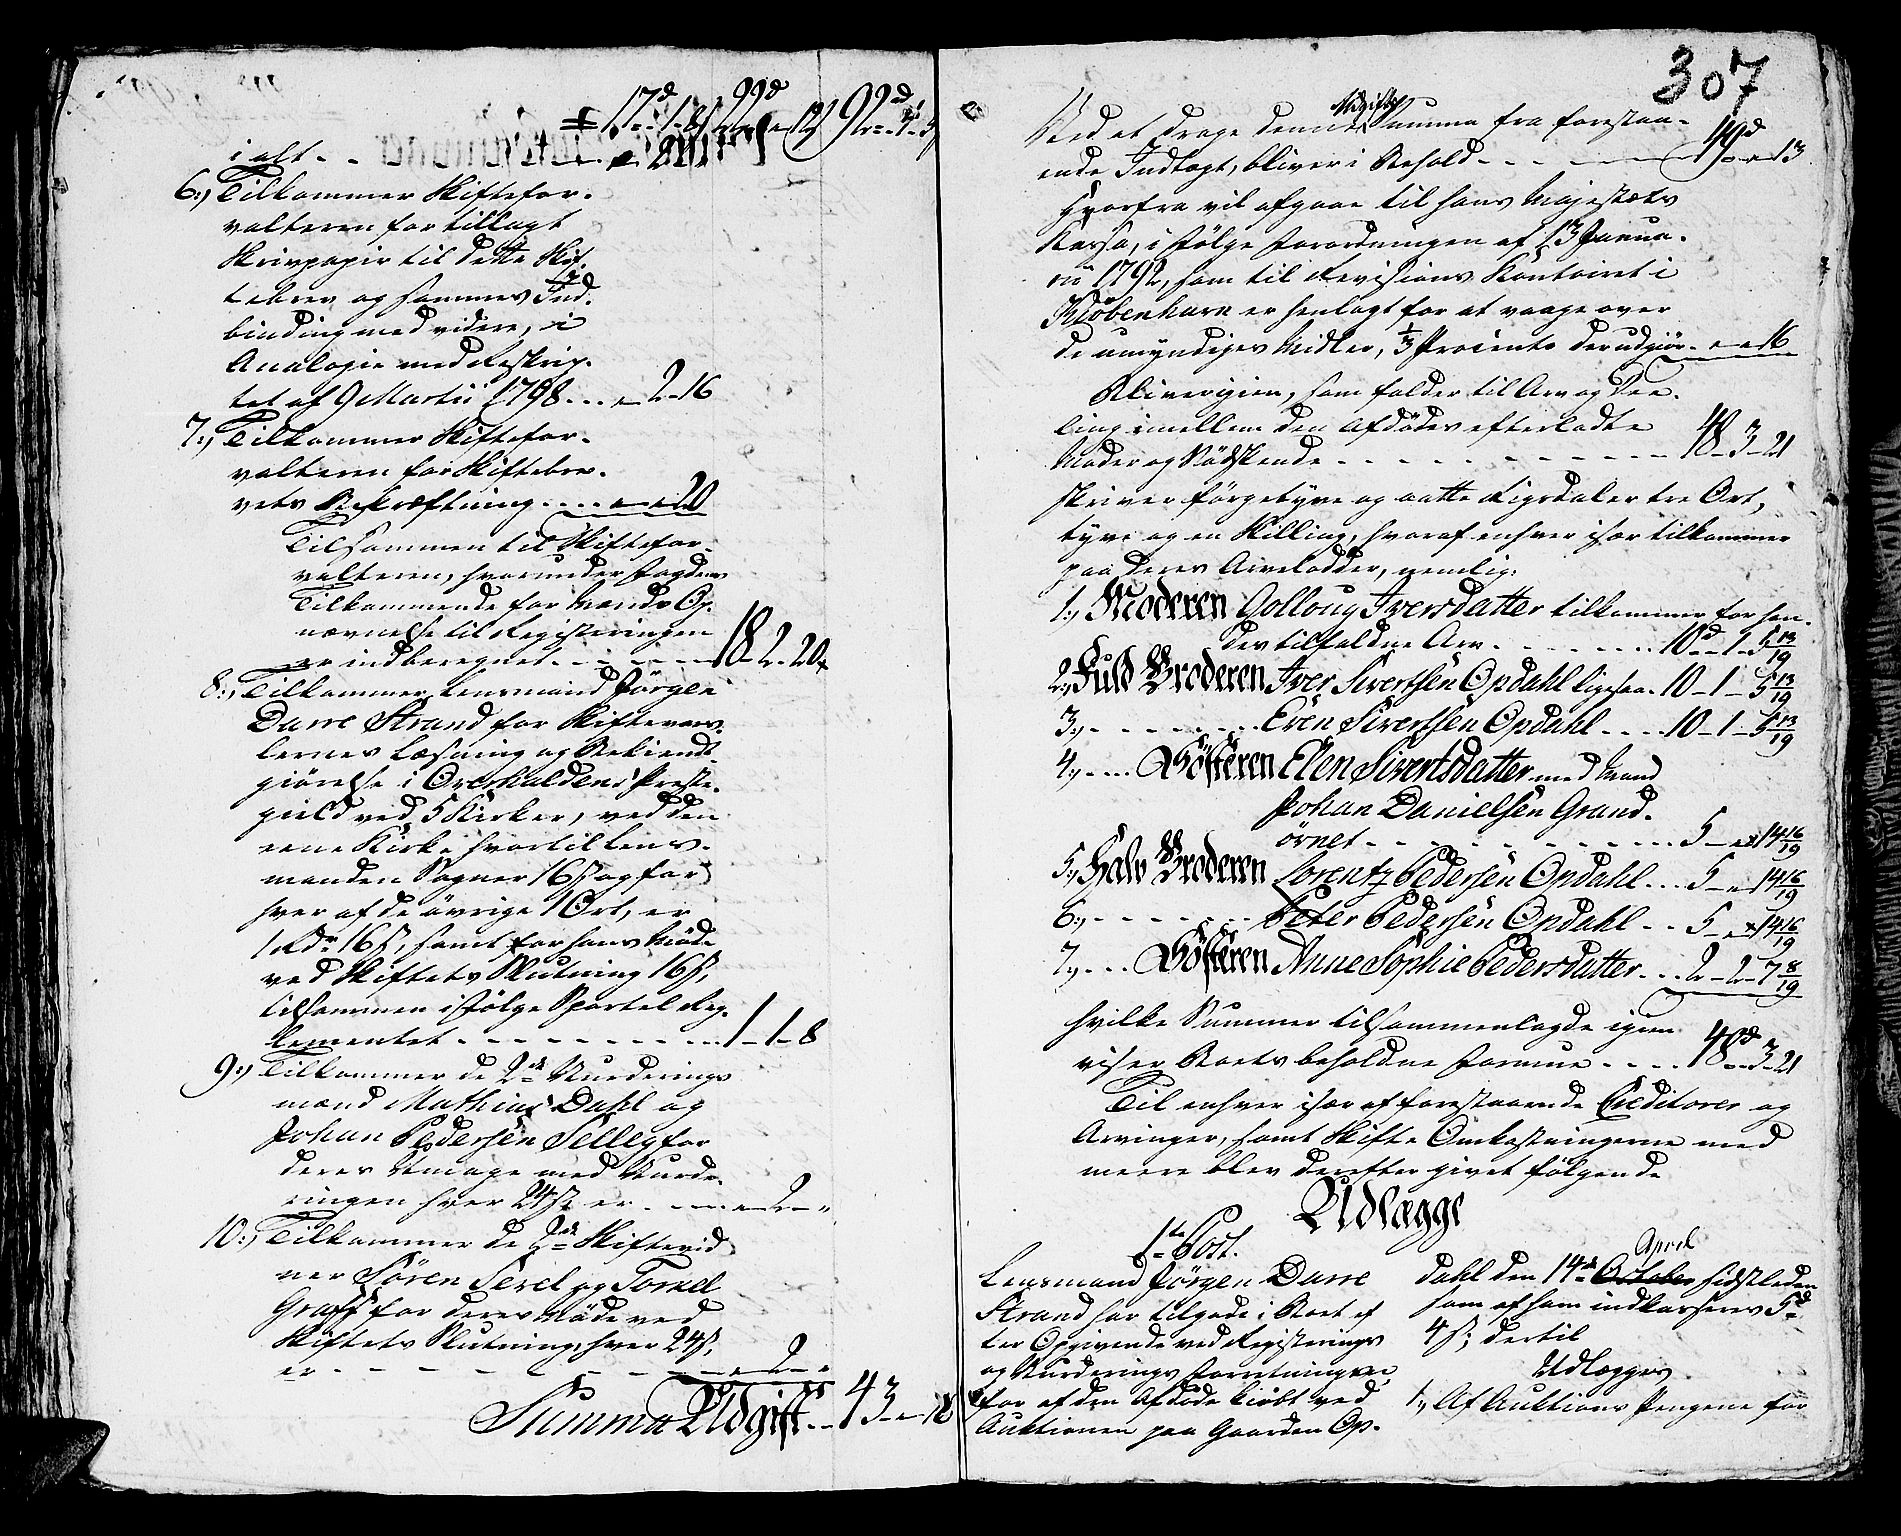 i alt - -
6:, Tilkommer Skiftefor-
valteren for tillagt
Skrivpapir til dette Skif-
tebrev og sammes Ind-
binding med videre, i
Analogie med Reskrip-
tet af 9 Martii 1798 - - 2 - 16
7:, Tilkommer Skiftefor-
valteren for Skiftebre-
vets Bekræftning - - - - 20
Tilsammen til Skiftefor-
valteren, hvorunder Fogdens
Tilkommende for Mænds Op-
nævnelse til Registeringen
er indberegnet - - - - 18 - 2 - 20
8:, Tilkommer Lensmand Jörgen
Darre Strand for Skiftevars-
lernes Læsning og Bekiendt-
giörelse i Overhaldens Præste-
gield ved 5 Kirker, ved den
eene Kirke hvortil Lens-
manden Sogner 16 s og for
hver af de övrige 1 Ort, er
1 Rdr 16 s, samt for hans Möde
ved Skiftets Slutning 16 s,
tilsammen ifölge Sportel Reg-
lementet - - - - - - - 1 - 1 - 8
9:, Tilkommer de 2de Vurderings
mænd Mathias Dahl og
Johan Pedersen Selleg for
deres Umage med Vurde-
ringen hver 24 s er - - - 2 - "
10:, Tilkommer de 2de Skiftevid-
ner Sören Serel og Torkel
Graff for deres Möde ved
Skiftets Slutning, hver 24 s,
er - - - - - - 2 - "
Summa Udgift - - 43 - " - 18
307
Ved at drage denne Udgifts Summa fra foresta-
ende Indtægt, bliver i Behold - - - - 49d - " - 13
Hvorfra vil afgaae til hans Majestæts
Kassa, i fölge Forordningen af 13 Janua-
rii 1792, som til Revisions Kontoiret i
Kiöbenhavn er henlagt for at vaage over
de umyndiges Midler, 1/3 Procento der udgiör - " - " 16
Bliver igien, som falder til Arv og Dee-
ling imellem den Afdödes efterladte
Moder og Södskende - - - - - - 48 - 3 - 21
skriver förgetyve og aatte Rigsdaler tre Ort,
tyve og en Skilling, hvoraf enhver især tilkommer
paa deres Arvelodder, nemlig:
1:, Moderen Golloug Iversdatter tilkommer for hen-
des tilfaldne Arv - - - - - 10d - 1 - 5 13/19
2:, Fuld Broderen Iver Sivertsen Opdahl ligesaa - 10 - 1 - 5 13/19
3:, - - - - - - Even Sivertsen Opdahl - - - 10 - 1 - 5 13/19
4:, - - - Sösteren Elen Sivertsdatter med Mand
Johan Danielsen Grand-
örnet - - - - - - - - 5 - " - 14 16/19
5:, Halv Broderen Lorentz Pedersen Opdahl - - - 5 - " - 14 16/19
6:, - - - - - - Peter Pedersen Opdahl - - 5 - " - 14 16/19
7:, - - - Sösteren Anne Sophie Pedersdatter - - - 2 - 2 - 7 8/19
hvilke Summer tilsammenlagde igien
viser Boets beholdne Formue - - - - 48d - 3 - 21
Til enhver især af forestaaende Creditorer og
Arvinger, samt Skifte Omkostningerne med
meere blev derefter givet fölgende
Udlægge
1te Post.
Lensmand Jörgen Darre
Strand har tilgode i Boet ef-
ter Opgivende ved Registerings
og Vurderings Forretningen,
for af den Afdöde kiöbt ved
Auktionen paa Gaarden Op-
April
dahl den 14de October sidstleden
som af ham indkasseres 5d
4 s; dertil
Udlægges
1:, Af Auktions Pengene for